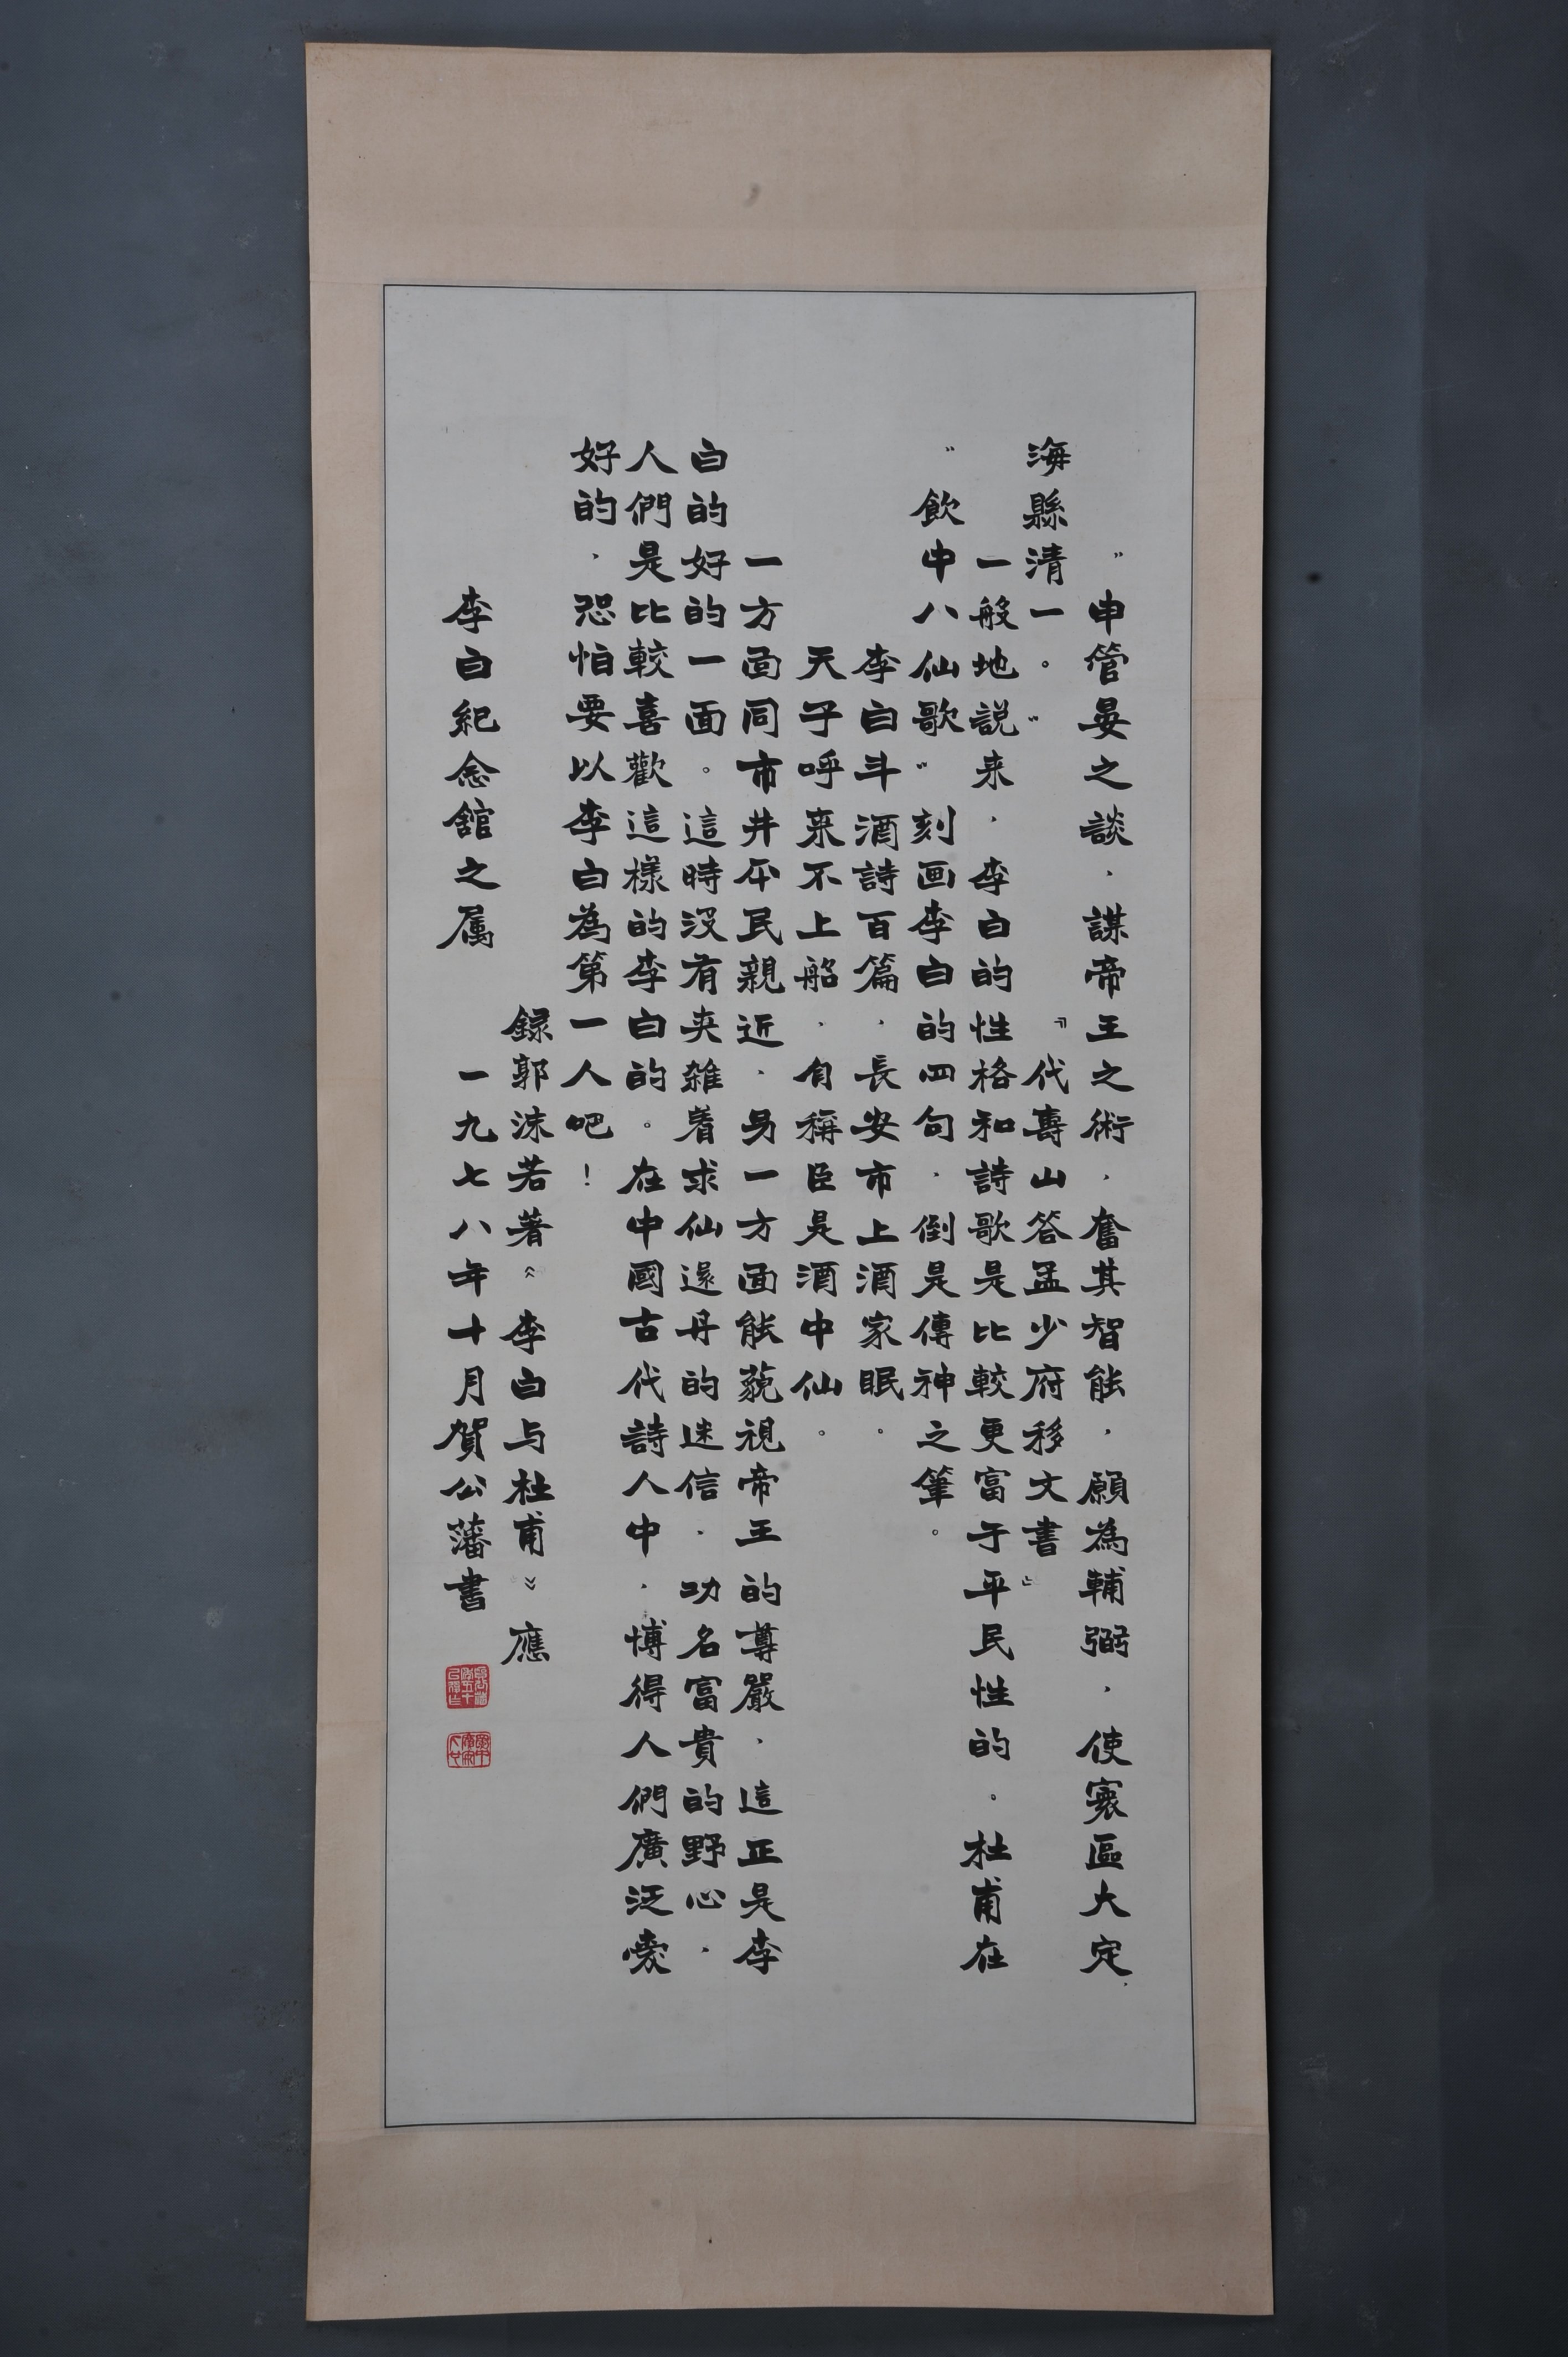 “申管晏之談，謀帝王之術，奮其智能，願為輔弼，使寰區大定，
海縣清一。”『代壽山答孟少府移文書』
一般地説来，李白的性格和詩歌是比較更富于平民性的。杜甫在
“飲中八仙歌”刻画李白的四句，倒是傳神之筆。
李白斗酒詩百篇，長安市上酒家眠．
天子呼来不上船，自稱臣是酒中仙。
一方面同市井平民親近，另一方面能藐視帝王的尊嚴，這正是李
白的好的一面。這時没有夹雜着求仙還丹的迷信，功名富貴的野心，
人們是比較喜歡這樣的李白的。在中國古代詩人中，博得人們廣泛愛
好的，恐怕要以李白為第一人吧！
録郭沫若著《李白与杜甫》應
李白紀念舘之属 一九七八年十月賀公藩書